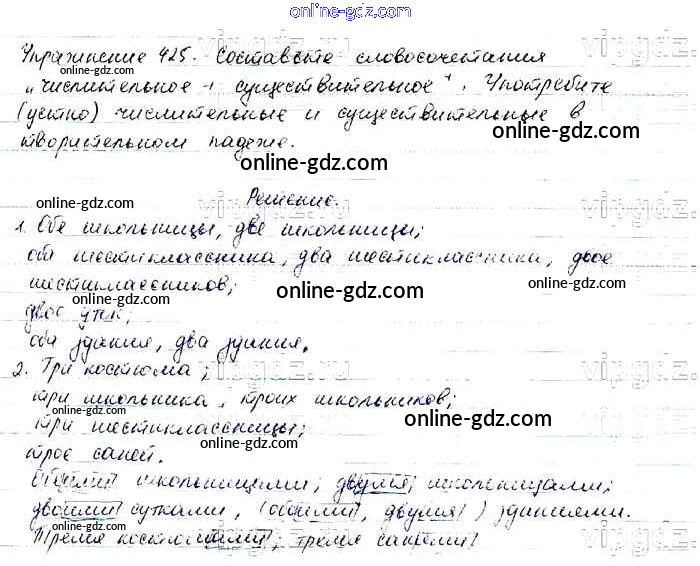 online-gdz.com
Упражнение 425. Составьте словосочетания
online-gdz.com
„числительное + существительное". Употребите
(устно) числительные и существительные в
online-gdz.com
творительном падеже.
online-gdz.com
Решение.
online-gdz.com
vipgdz.ru
1. Обе школьницы, две школьницы;
оба шестиклассника, два шестиклассника, двое
шестиклассников;
online-gdz.com
двое суток;
online-gdz.com
оба здания, два здания.
2. Три костюма;
vipgdz.ru
online-gdz.com
три школьника, троих школьников;
online-gdz.com
три шестиклассницы;
online-gdz.com
трое саней.
online-gdz.com
Обеими школьницами; двумя школьницами;
двоими сутками, (обоими, двумя) зданиями.
online-gdz.com
Тремя костюмами; тремя санями.
online-gdz.com